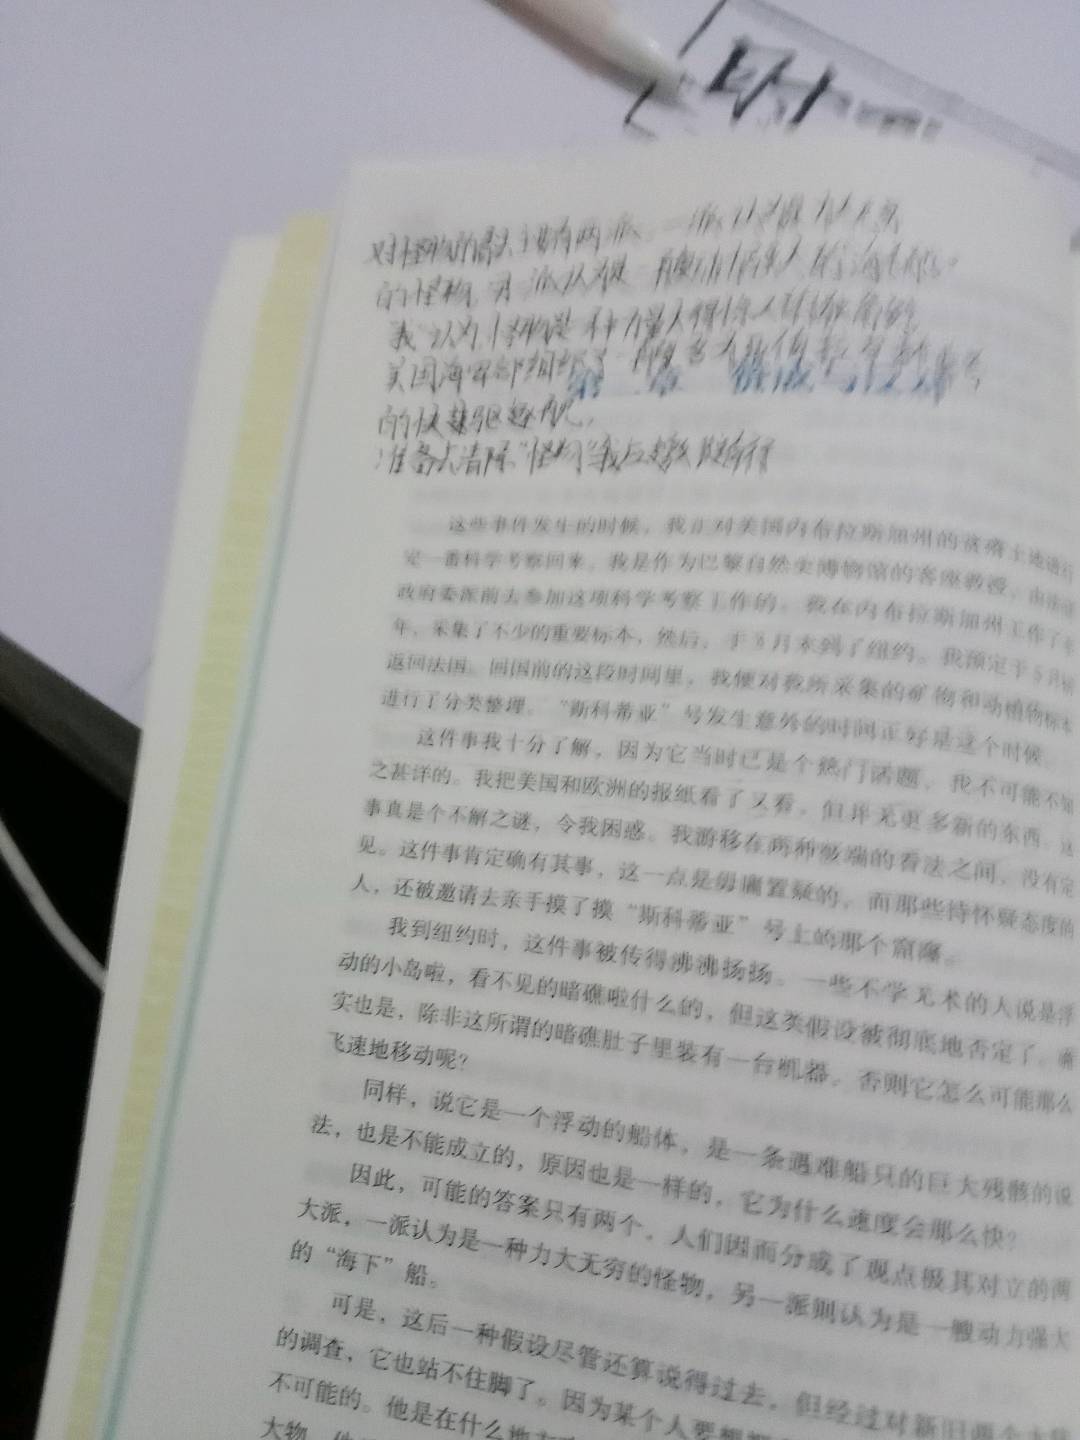 对怪物的看法主要有两派，一派认为是力大无穷
的怪物，另一派认为是一艘动力强大的"海下"船。
我认为怪物是一种力量大得惊人的独角鲸
美国海军部组织了一艘名为林肯号
的快速驱逐舰，
准备去清除"怪物"我与
第二章
这些事件发生的时候，我正对美国内布拉斯加州的贫瘠土地进行
完一番科学考察回来。我是作为巴黎自然史博物馆的客座教授，由法国
政府委派前去参加这项科学考察工作的。我在内布拉斯加州工作了半
年，采集了不少的重要标本，然后，于3月末到了纽约。我预定于5月初
返回法国。回国前的这段时间里，我便对我所采集的矿物和动植物标本
进行了分类整理。"斯科蒂亚"号发生意外的时间正好是这个时候。
这件事我十分了解，因为它当时已是个热门话题，我不可能不知
之甚详的。我把美国和欧洲的报纸看了又看，但并无更多新的东西。这
事真是个不解之谜，令我困惑。我游移在两种极端的看法之间，没有定
见。这件事肯定确有其事，这一点是毋庸置疑的，而那些持怀疑态度的
人，还被邀请去亲手摸了摸"斯科蒂亚"号上的那个窟窿。
我到纽约时，这件事被传得沸沸扬扬。一些不学无术的人说是浮
动的小岛啦，看不见的暗礁啦什么的，但这类假设被彻底地否定了。确
实也是，除非这所谓的暗礁肚子里装有一台机器，否则它怎么可能那么
飞速地移动呢？
同样，说它是一个浮动的船体，是一条遇难船只的巨大残骸的说
法，也是不能成立的，原因也是一样的，它为什么速度会那么快？
因此，可能的答案只有两个，人们因而分成了观点极其对立的两
大派，一派认为是一种力大无穷的怪物，另一派则认为是一艘动力强大
的"海下"船。
可是，这后一种假设尽管还算说得过去，但经过对新旧两个大陆
的调查，它也站不住脚了。因为某个人要
不可能的。他是在什么地方
大物，他